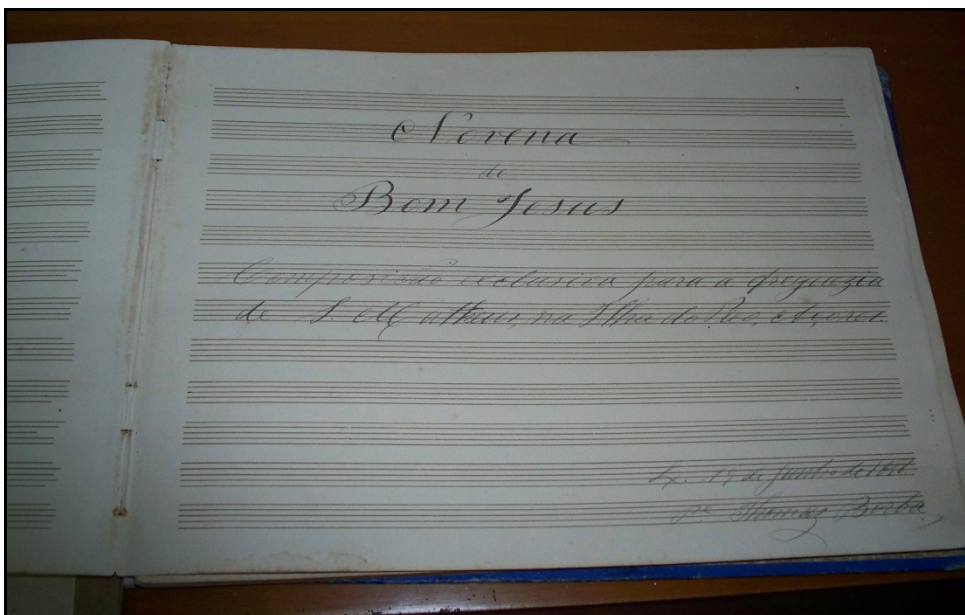 Novena
de
Bom Jesus
Composição exclusiva para a freguezia
de S. Matheus, na Ilha do Pico, Açores.
Lx. de Junho de
Pe. Thomaz Borba